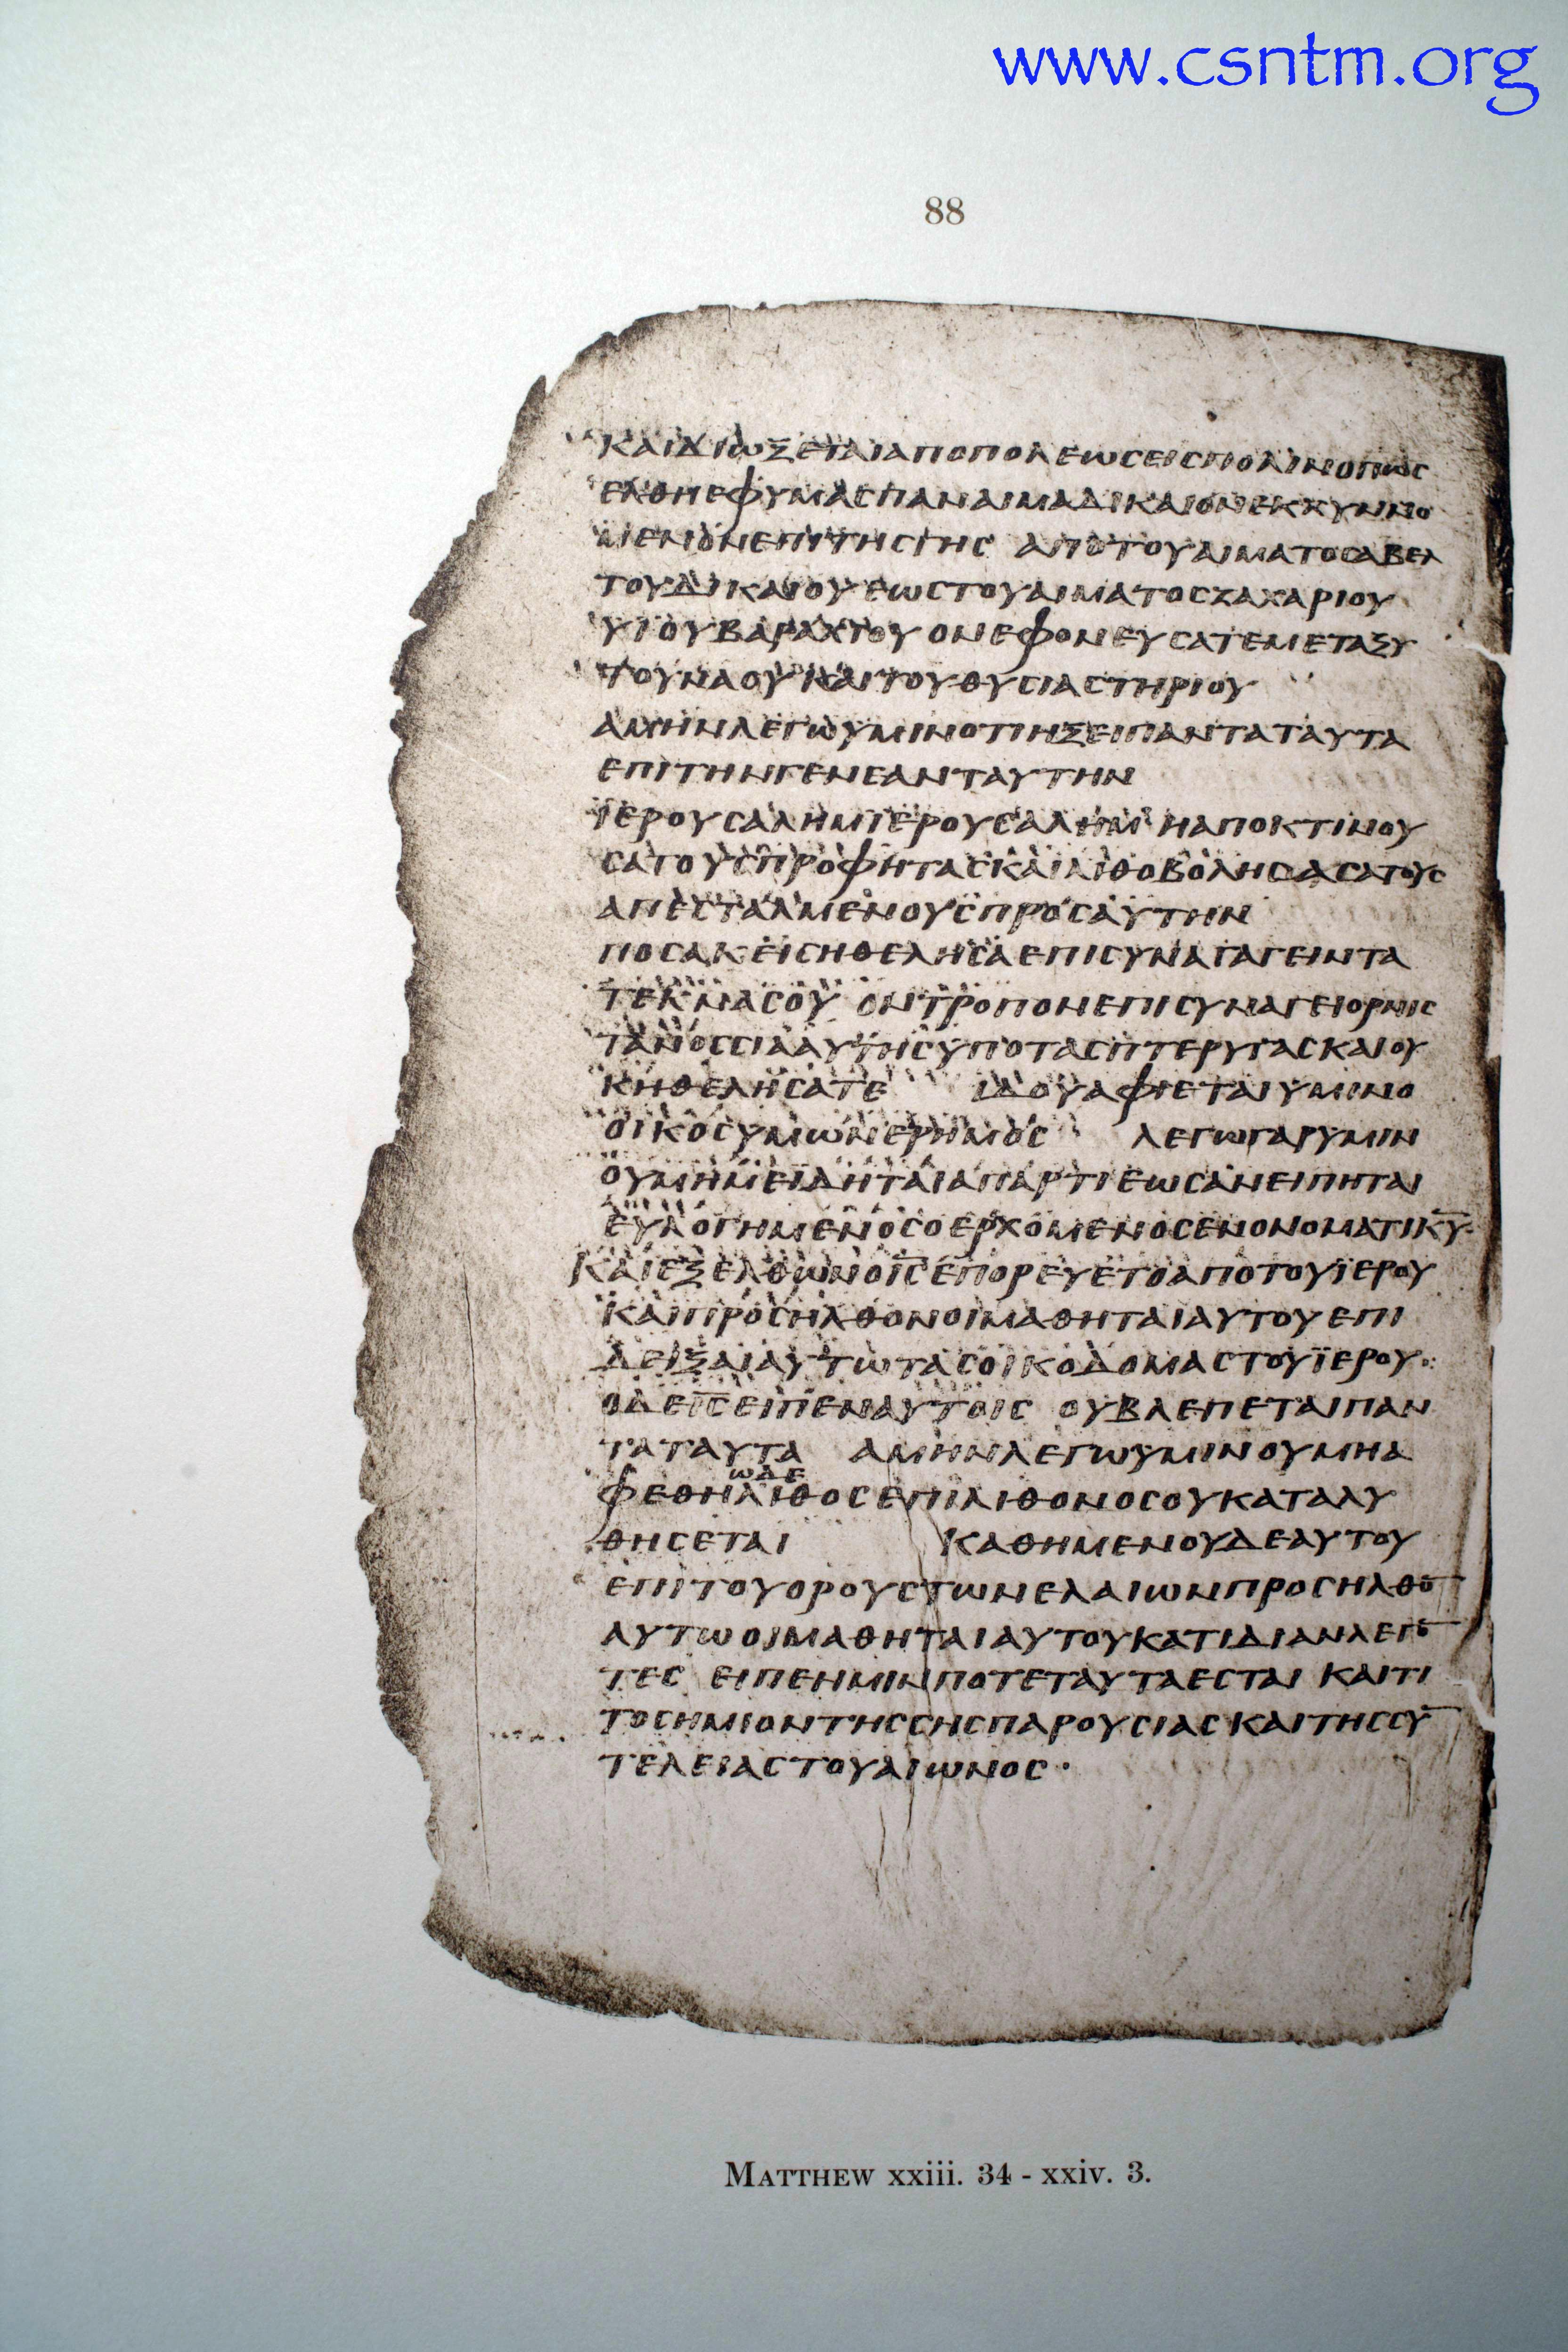 www.csntm.org
88
ΚΑΙΔΙΩΞΕΤΑΙΑΠΟΠΟΛΕΩСΕΙСΠΟΛΙΝΟΠΩС
ΕΛΘΗΕΦΥΜΑСΠΑΝΑΙΜΑΔΙΚΑΙΟΝΕΚΧΥΝΝΟ
ΜΕΝΟΝΕΠΙΤΗСΓΗС ΑΠΟΤΟΥΑΙΜΑΤΟСΑΒΕΛ
ΤΟΥΔΙΚΑΙΟΥΕΩСΤΟΥΑΙΜΑΤΟСΖΑΧΑΡΙΟΥ
ΥΙΟΥΒΑΡΑΧΙΟΥΟΝΕΦΟΝΕΥСΑΤΕΜΕΤΑΞΥ
ΤΟΥΝΑΟΥΚΑΙΤΟΥΘΥСΙΑСΤΗΡΙΟΥ
ΑΜΗΝΛΕΓΩΥΜΙΝΟΤΙΗΞΕΙΠΑΝΤΑΤΑΥΤΑ
ΕΠΙΤΗΝΓΕΝΕΑΝΤΑΥΤΗΝ
ΪΕΡΟΥСΑΛΗΜΪΕΡΟΥСΑΛΗΜ ΗΑΠΟΚΤΙΝΟΥ
СΑΤΟΥСΠΡΟΦΗΤΑСΚΑΙΛΙΘΟΒΟΛΗСΑСΑΤΟΥС
ΑΠΕСΤΑΛΜΕΝΟΥСΠΡΟСΑΥΤΗΝ
ΠΟСΑΚΕΙСΗΘΕΛΗСΑΕΠΙСΥΝΑΓΑΓΕΙΝΤΑ
ΤΕΚΝΑСΟΥ ΟΝΤΡΟΠΟΝΕΠΙСΥΝΑΓΕΙΟΡΝΙС
ΤΑΝΟССΙΑΑΥΤΗСΥΠΟΤΑСΠΤΕΡΥΓΑСΚΑΙΟΥ
ΚΗΘΕΛΗСΑΤΕ ΙΔΟΥΑΦΙΕΤΑΙΥΜΙΝΟ
ΟΙΚΟСΥΜΩΝΕΡΗΜΟС ΛΕΓΩΓΑΡΥΜΙΝ
ΟΥΜΗΜΕΪΔΗΤΑΙΑΠΑΡΤΙΕΩСΑΝΕΙΠΗΤΑΙ
ΕΥΛΟΓΗΜΕΝΟСΟΕΡΧΟΜΕΝΟСΕΝΟΝΟΜΑΤΙΚ̅Υ̅
ΚΑΙΕΞΕΛΘΩΝΟΙ̅С̅ΕΠΟΡΕΥΕΤΟΑΠΟΤΟΥΪΕΡΟΥ
ΚΑΙΠΡΟСΗΛΘΟΝΟΙΜΑΘΗΤΑΙΑΥΤΟΥΕΠΙ
ΔΕΙΞΑΙΑΥΤΩΤΑСΟΙΚΟΔΟΜΑСΤΟΥΪΕΡΟΥ:
ΟΔΕΙ̅С̅ΕΙΠΕΝΑΥΤΟΙС ΟΥΒΛΕΠΕΤΑΙΠΑΝ
ΤΑΤΑΥΤΑ ΑΜΗΝΛΕΓΩΥΜΙΝΟΥΜΗΑ
ΩΔΕ
ΦΕΘΗΛΙΘΟСΕΠΙΛΙΘΟΝΟСΟΥΚΑΤΑΛΥ
ΘΗСΕΤΑΙ ΚΑΘΗΜΕΝΟΥΔΕΑΥΤΟΥ
ΕΠΙΤΟΥΟΡΟΥСΤΩΝΕΛΑΙΩΝΠΡΟСΗΛΘΟ̅
ΑΥΤΩΟΙΜΑΘΗΤΑΙΑΥΤΟΥΚΑΤΙΔΙΑΝΛΕΓΟ̅
ΤΕС ΕΙΠΕΗΜΙΝΠΟΤΕΤΑΥΤΑΕСΤΑΙ ΚΑΙΤΙ
ΤΟСΗΜΙΟΝΤΗССΗСΠΑΡΟΥСΙΑСΚΑΙΤΗССΥ̅
ΤΕΛΕΙΑСΤΟΥΑΙΩΝΟС·
MATTHEW xxiii. 34 - xxiv. 3.